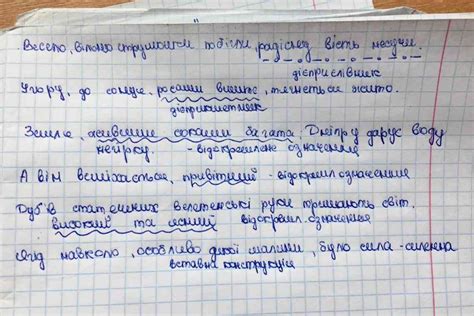 Весело, вільно струмочки побігли, радісную вість несучи.
дієприслівник
Угору, до сонця, росами вмите, тягнеться жито.
дієприкметник
Земле, живими соками багата, Дніпру дарує воду
- відокремлене означення
А він всміхається, привітний - відокремл означення
Дуб'в статечних велетенські руки тримають світ.
високий та ясний відокремл. означення
Ягід навколо, особливо дикої малини, було сила-силенна
вставна конструкція